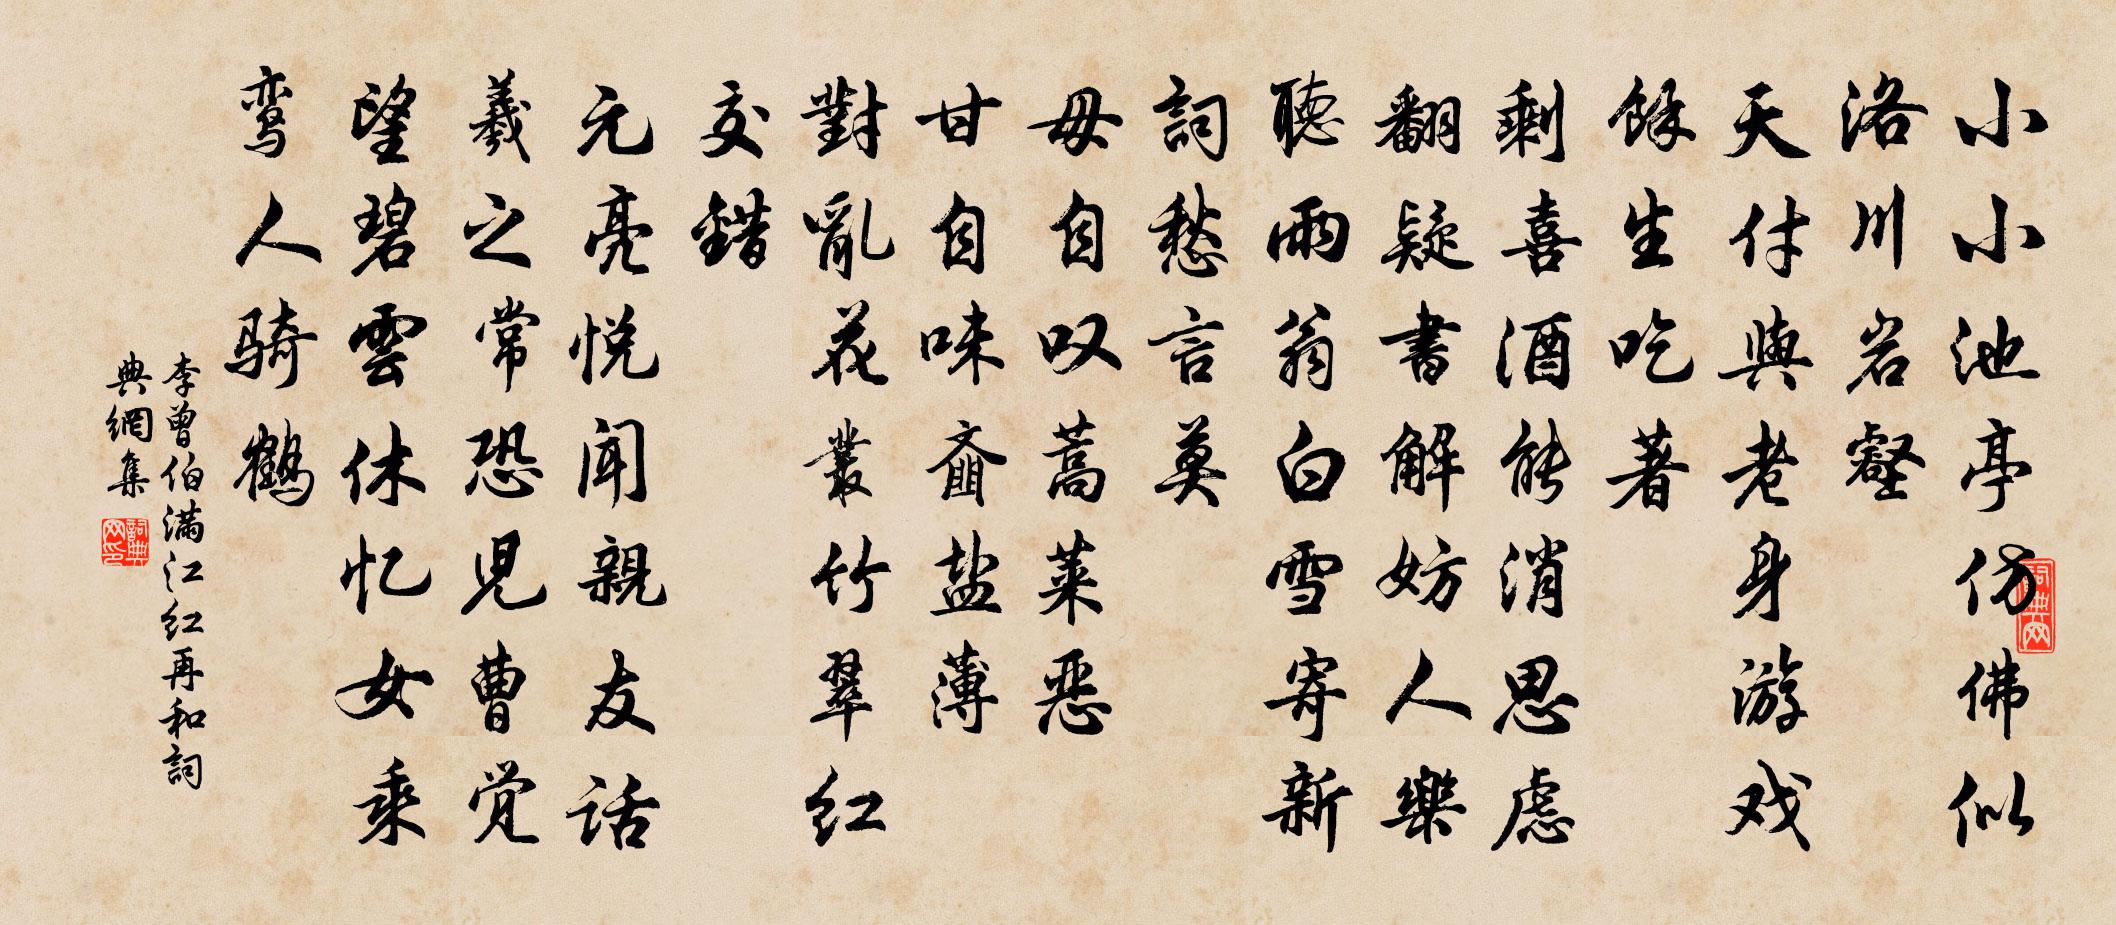 小小池亭仿佛似
洛川岩壑
天付與老身游戏
馀生吃著
剩喜酒能消思虑
翻疑書解妨人樂
聽雨翁白雪寄新
詞愁言莫
毋自叹蒿莱恶
甘自味齑盐薄
對亂花叢竹翠红
交錯
元亮悦闻親友話
羲之常恐兒曹觉
望碧雲休忆女乘
鸾人骑鶴
李曾伯满江红再和詞
典網集
詞典网
詞典网印